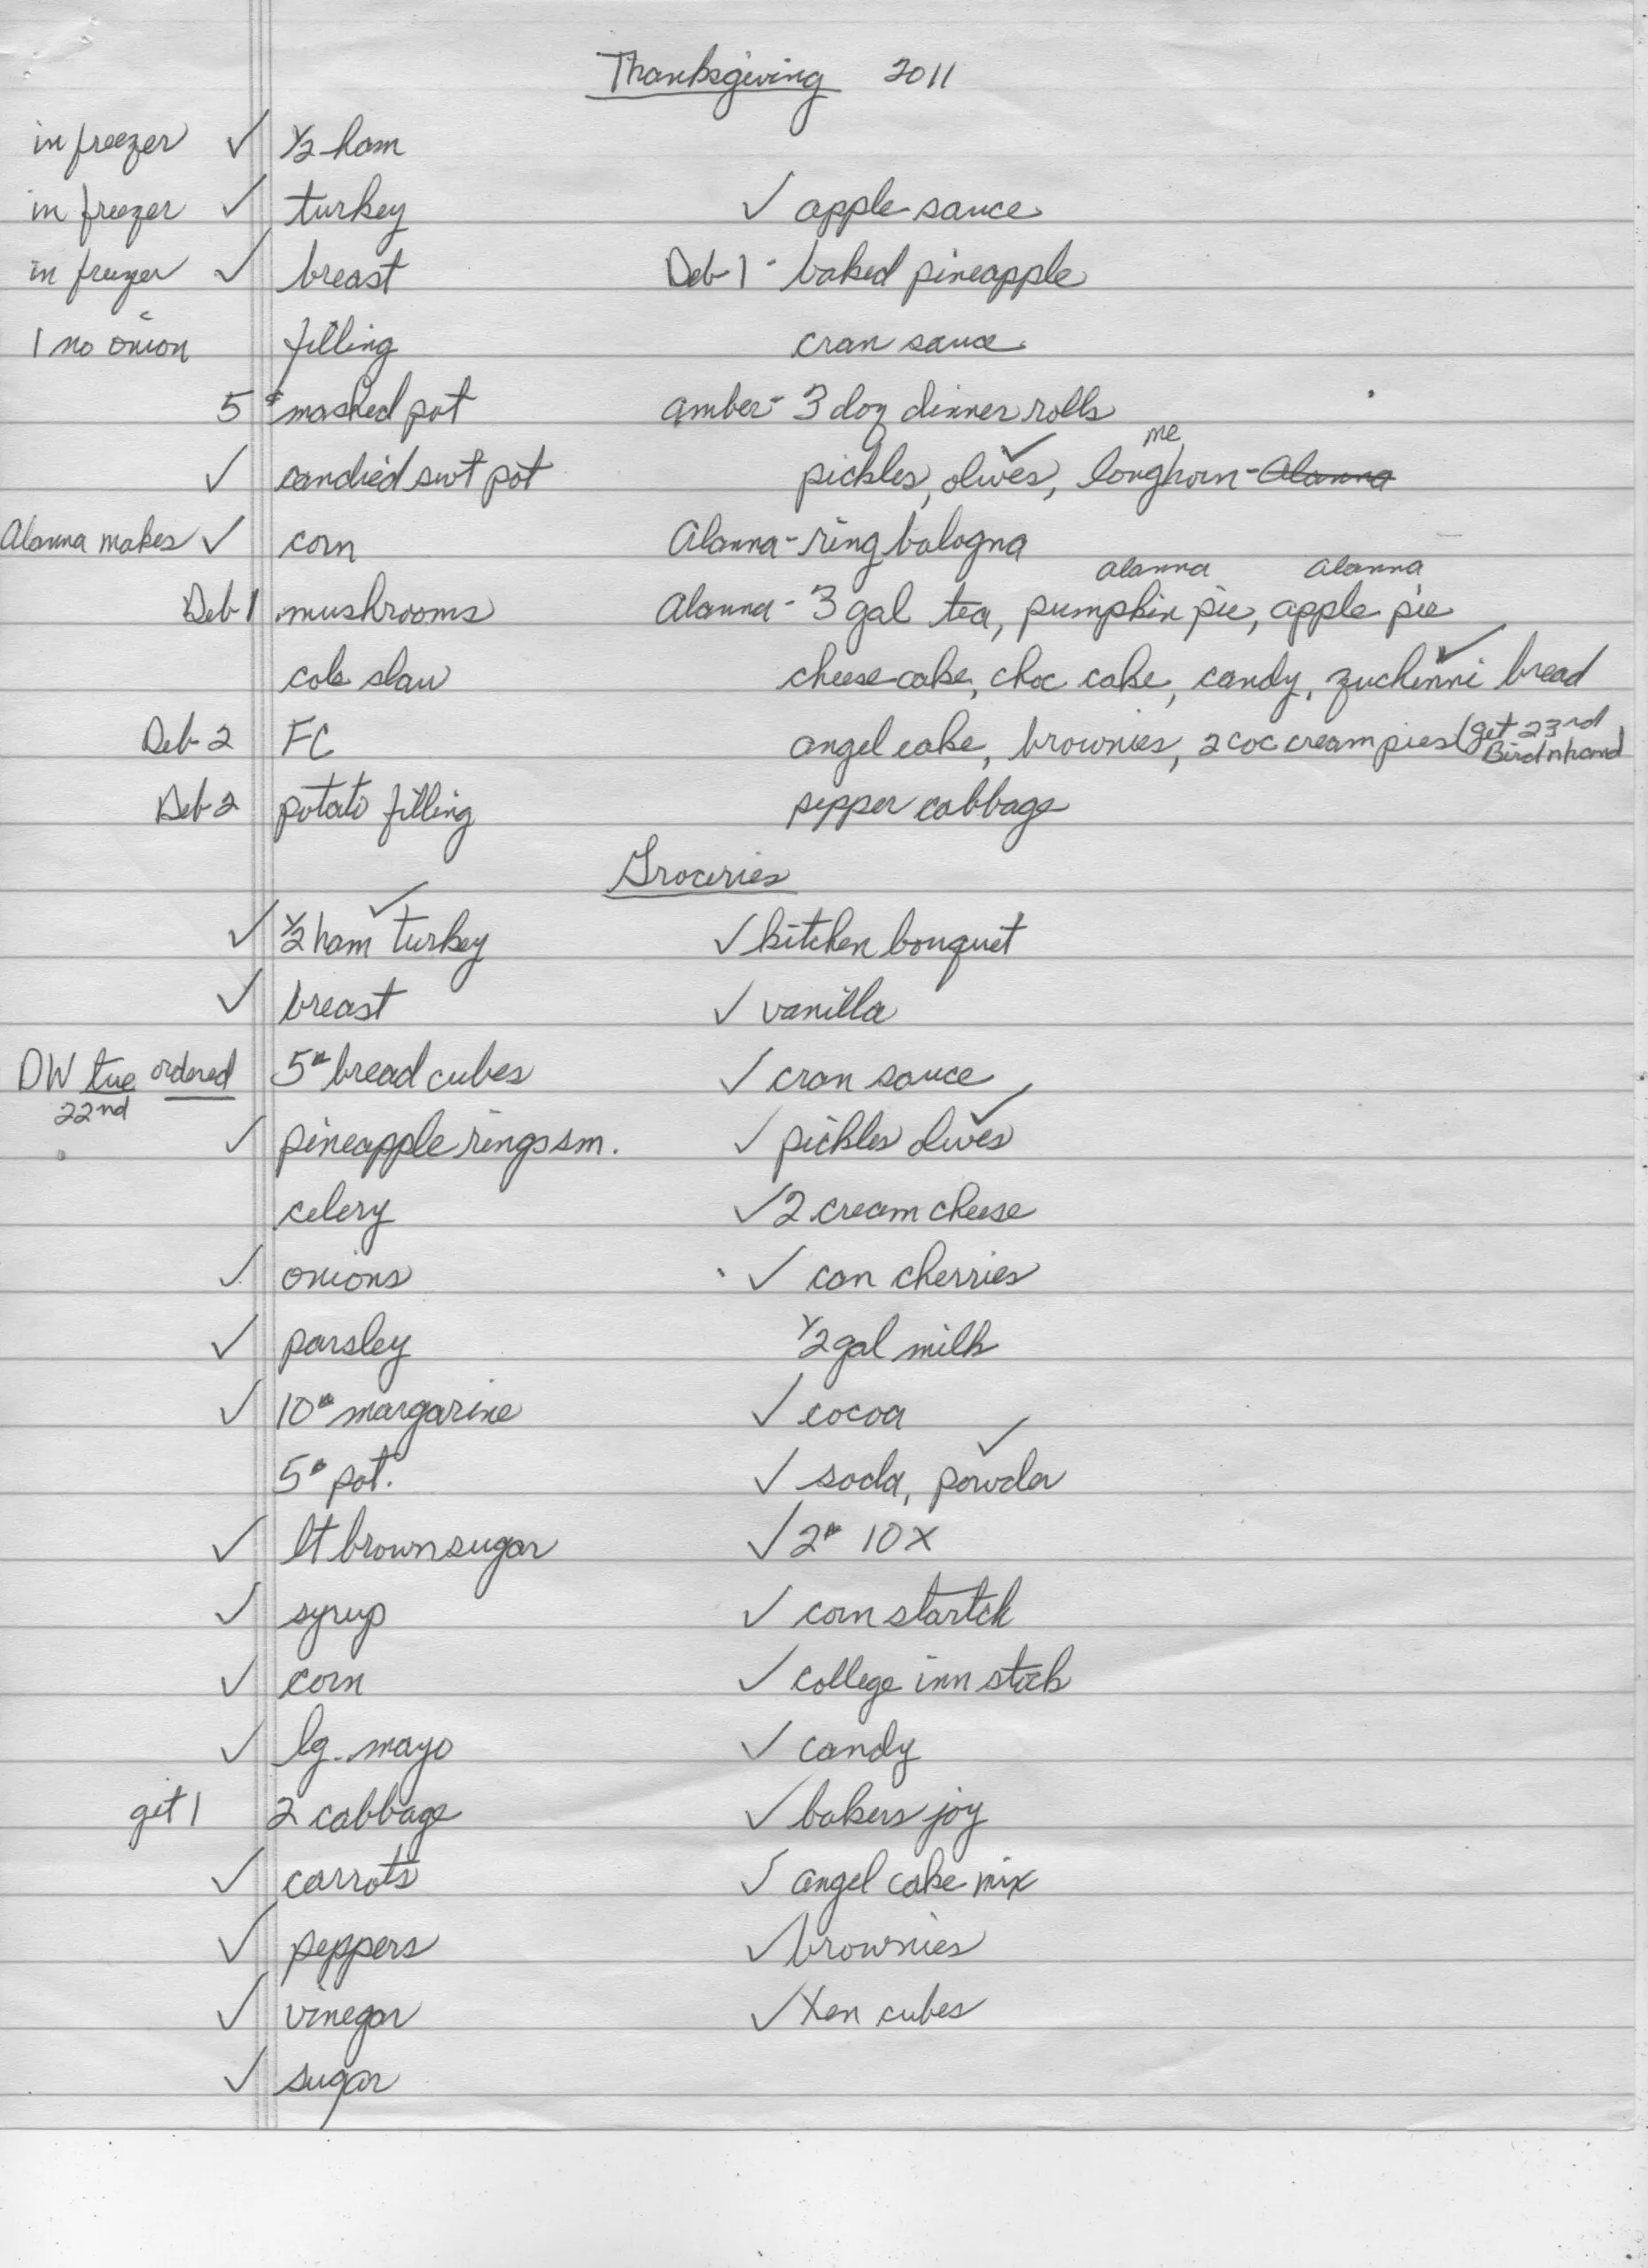 Thanksgiving 2011
in freezer ✓ ½ ham
in freezer ✓ turkey ✓ apple sauce
in freezer ✓ breast Deb 1 - baked pineapple
1 no onion filling cran sauce
5# mashed pot amber - 3 doz dinner rolls
me
✓ candied swt pot pickles, olives, ✓ longhorn - Alanna
Alanna makes ✓ corn Alanna - ring bologna
alanna alanna
Deb 1 mushrooms Alanna - 3 gal tea, pumpkin pie, apple pie
cole slaw cheese cake, choc cake, candy, ✓ zuchinni bread
Deb 2 FC angel cake, brownies, 2 coc cream pies (get 23rd
Bird n hand
Deb 2 potato filling pepper cabbage
Groceries
✓ ½ ham ✓ turkey ✓ kitchen bouquet
✓ breast ✓ vanilla
DW tue ordered 5# bread cubes ✓ cran sauce
22nd
✓ pineapple rings sm. ✓ pickles ✓ olives
celery ✓ 2 cream cheese
✓ onions ✓ can cherries
✓ parsley ½ gal milk
✓ 10# margarine ✓ cocoa
5# pot. ✓ soda, ✓ powder
✓ lt brown sugar ✓ 2# 10X
✓ syrup ✓ corn startch
✓ corn ✓ college inn stock
✓ lg. mayo ✓ candy
get 1 2 cabbage ✓ bakers joy
✓ carrots ✓ angel cake mix
✓ peppers ✓ brownies
✓ vinegar ✓ cubes
✓ sugar